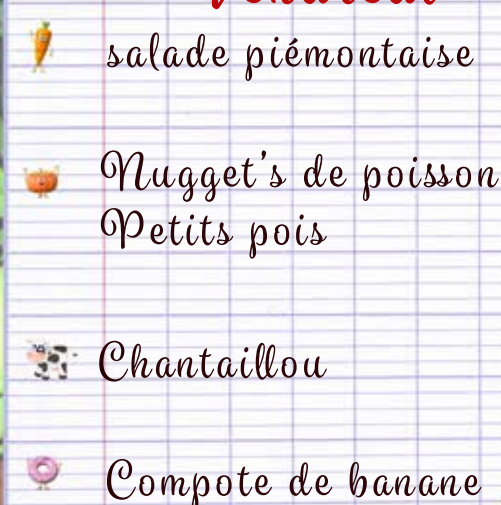 salade piémontaise
Nugget's de poisson
Petits pois
Chantaillou
Compote de banane